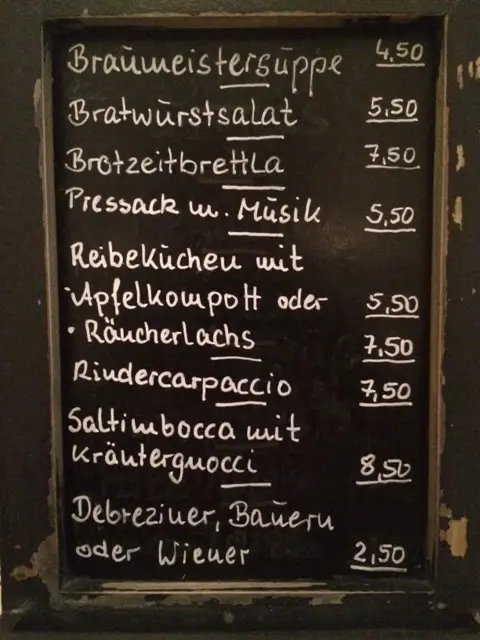 Braumeistersuppe 4,50
Bratwurstsalat 5,50
Brotzeitbrettla 7,50
Pressack m. Musik 5,50
Reibekuchen mit
·Apfelkompott oder 5,50
· Räucherlachs 7,50
Rindercarpaccio 7,50
Saltimbocca mit
Kräutergnocci 8,50
Debreziner, Bauern
oder Wiener 2,50